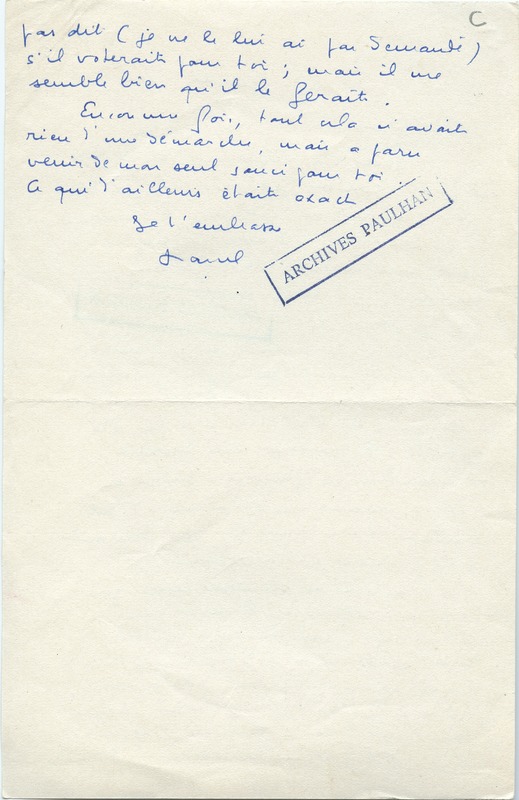 C
pas dit (je ne le lui ai pas demandé)
s'il voterait pour toi ; mais il me
semble bien qu'il le ferait.
Encore une fois, tout cela n'avait
rien d'une démarche, mais a paru
venir de mon seul souci pour toi.
Ce qui d'ailleurs était exact
Je t'embrasse
ARCHIVES PAULHAN